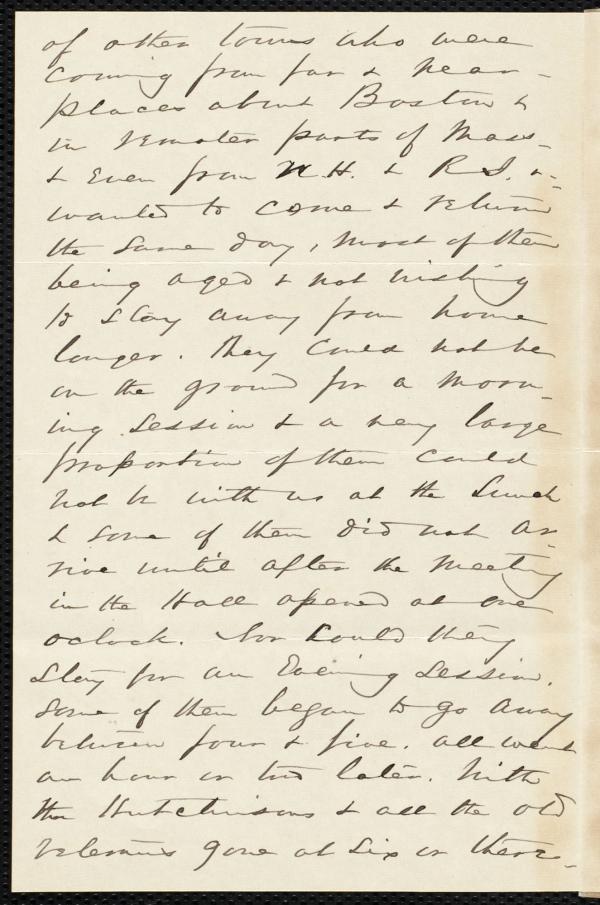 of other towns who were
coming from far & near -
places about Boston &
in remoter parts of Mass -
& even from N.H. & R.I. & -
wanted to come & return
the same day, most of them
being aged & not wishing
to stay away from home
longer. They could not be
on the ground for a morn-
ing session & a very large
proportion of them could
not be with us at the Lunch
& some of them did not ar-
rive until after the meeting
in the Hall opened at one
oclock. Nor could they
stay for an Evening Session.
Some of them began to go away
between four & five. All went
an hour or two later. With
the Hutchinsons & all the old
veterans gone at six or there-